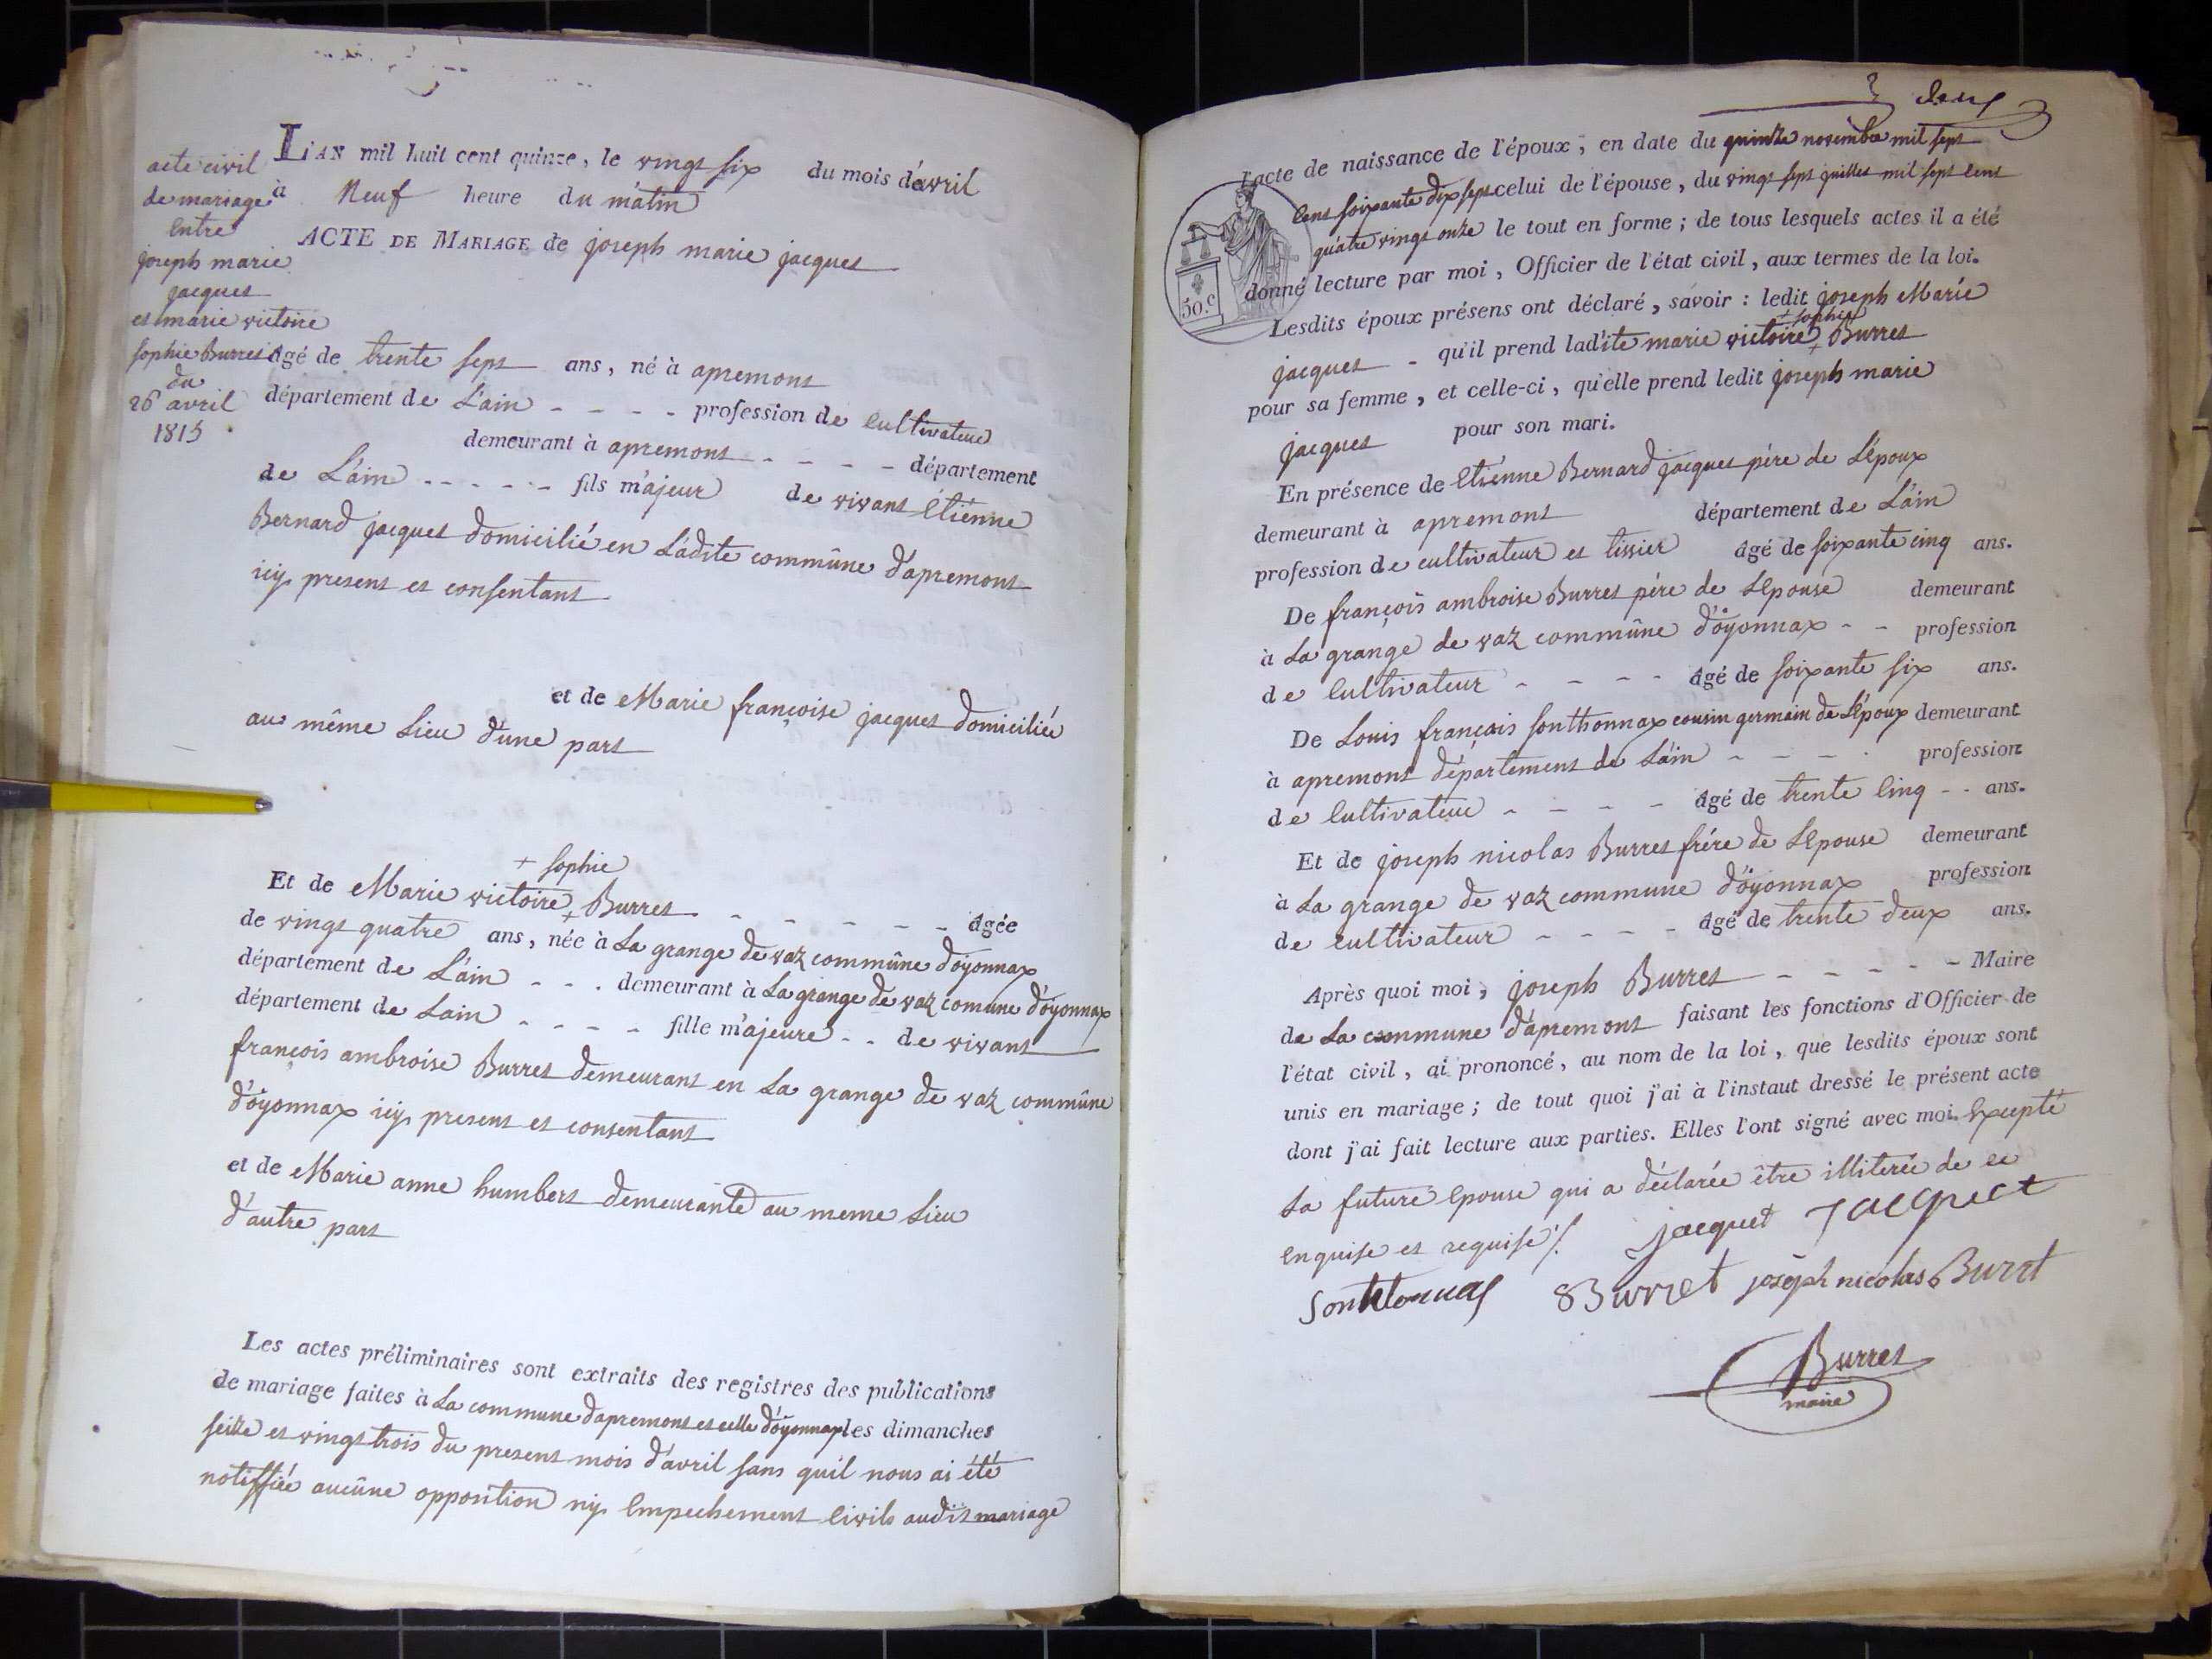 acte civil
de mariage
entre
joseph marie
jacquet
et marie victoire
sophie Burret
du
26 avril
1815
L'AN mil huit cent quinze, le vingt six du mois d'avril
à Neuf heure du matin
ACTE DE MARIAGE de joseph marie jacquet
âgé de trente sept ans, né à apremont
département de L'ain - - - - profession de cultivateur
demeurant à apremont - - - - département
de L'ain - - - - - fils majeur de vivant étiénne
Bernard jacquet domicilié en Ladite commûne d'apremont
icy present et consentant
et de Marie françoise jacquet domiciliée
au même Lieu d'une part
+ sophie
Et de Marie victoire + Burret - - - - - - âgée
de vingt quatre ans, née à La grange de vaz commûne d'oyonnax
département de L'ain - - - demeurant à La grange de vaz comune d'oyonnax
département de Lain - - - - fille majeure - - de vivant
françois ambroise Burret demeurant en La grange de vaz commûne
d'oyonnax icy present et consentant
et de Marie anne humbert demeurante au meme Lieu
d'autre part
Les actes préliminaires sont extraits des registres des publications
de mariage faites à La commune d'apremont et celle d'oyonnax les dimanches
seize et vingt trois du present mois d'avril sans quil nous ai été
notiffiée aucûne opposition ny Empechement Civils audit mariage
50.c
l'acte de naissance de l'époux, en date du quinze novembre mil sept
cent soixante dix sept celui de l'épouse, du vingt sept juillet mil sept cent
quatre vingt onze le tout en forme; de tous lesquels actes il a été
donné lecture par moi, Officier de l'état civil, aux termes de la loi.
Lesdits époux présens ont déclaré, savoir: ledit joseph Marie
+ sophie
jacquet - qu'il prend ladite marie victoire + Burret
pour sa femme, et celle-ci, qu'elle prend ledit joseph marie
jacquet pour son mari.
En présence de Etiénne Bernard jacquet père de L'époux
demeurant à apremont département de L'ain
profession de cultivateur et tissier âgé de soixante cinq ans.
De françois ambroise Burret père de LEpouse demeurant
à La grange de vaz commûne d'oyonnax - - profession
de Cultivateur - - - - âgé de soixante six ans.
De Louis françois sonthonnax cousin germain de L'époux demeurant
à apremont département de L'ain - - - - profession
de Cultivateur - - - - âgé de trente Cinq - - ans.
Et de joseph nicolas Burret frére de LEpouse demeurant
à La grange de vaz commune d'oyonnax profession
de cultivateur - - - - âgé de trente deux ans.
Après quoi moi, joseph Burret - - - - - Maire
de La commune d'apremont faisant les fonctions d'Officier de
l'état civil, ai prononcé, au nom de la loi, que lesdits époux sont
unis en mariage; de tout quoi j'ai à l'instaut dressé le présent acte
dont j'ai fait lecture aux parties. Elles l'ont signé avec moi. Excepté
La future Epouse qui a déclarée être illiterée de ce
Enquise et requise ./.
jacquet Jacquet
Sonthonnax Burret joseph nicolas Burret
Burret
maire